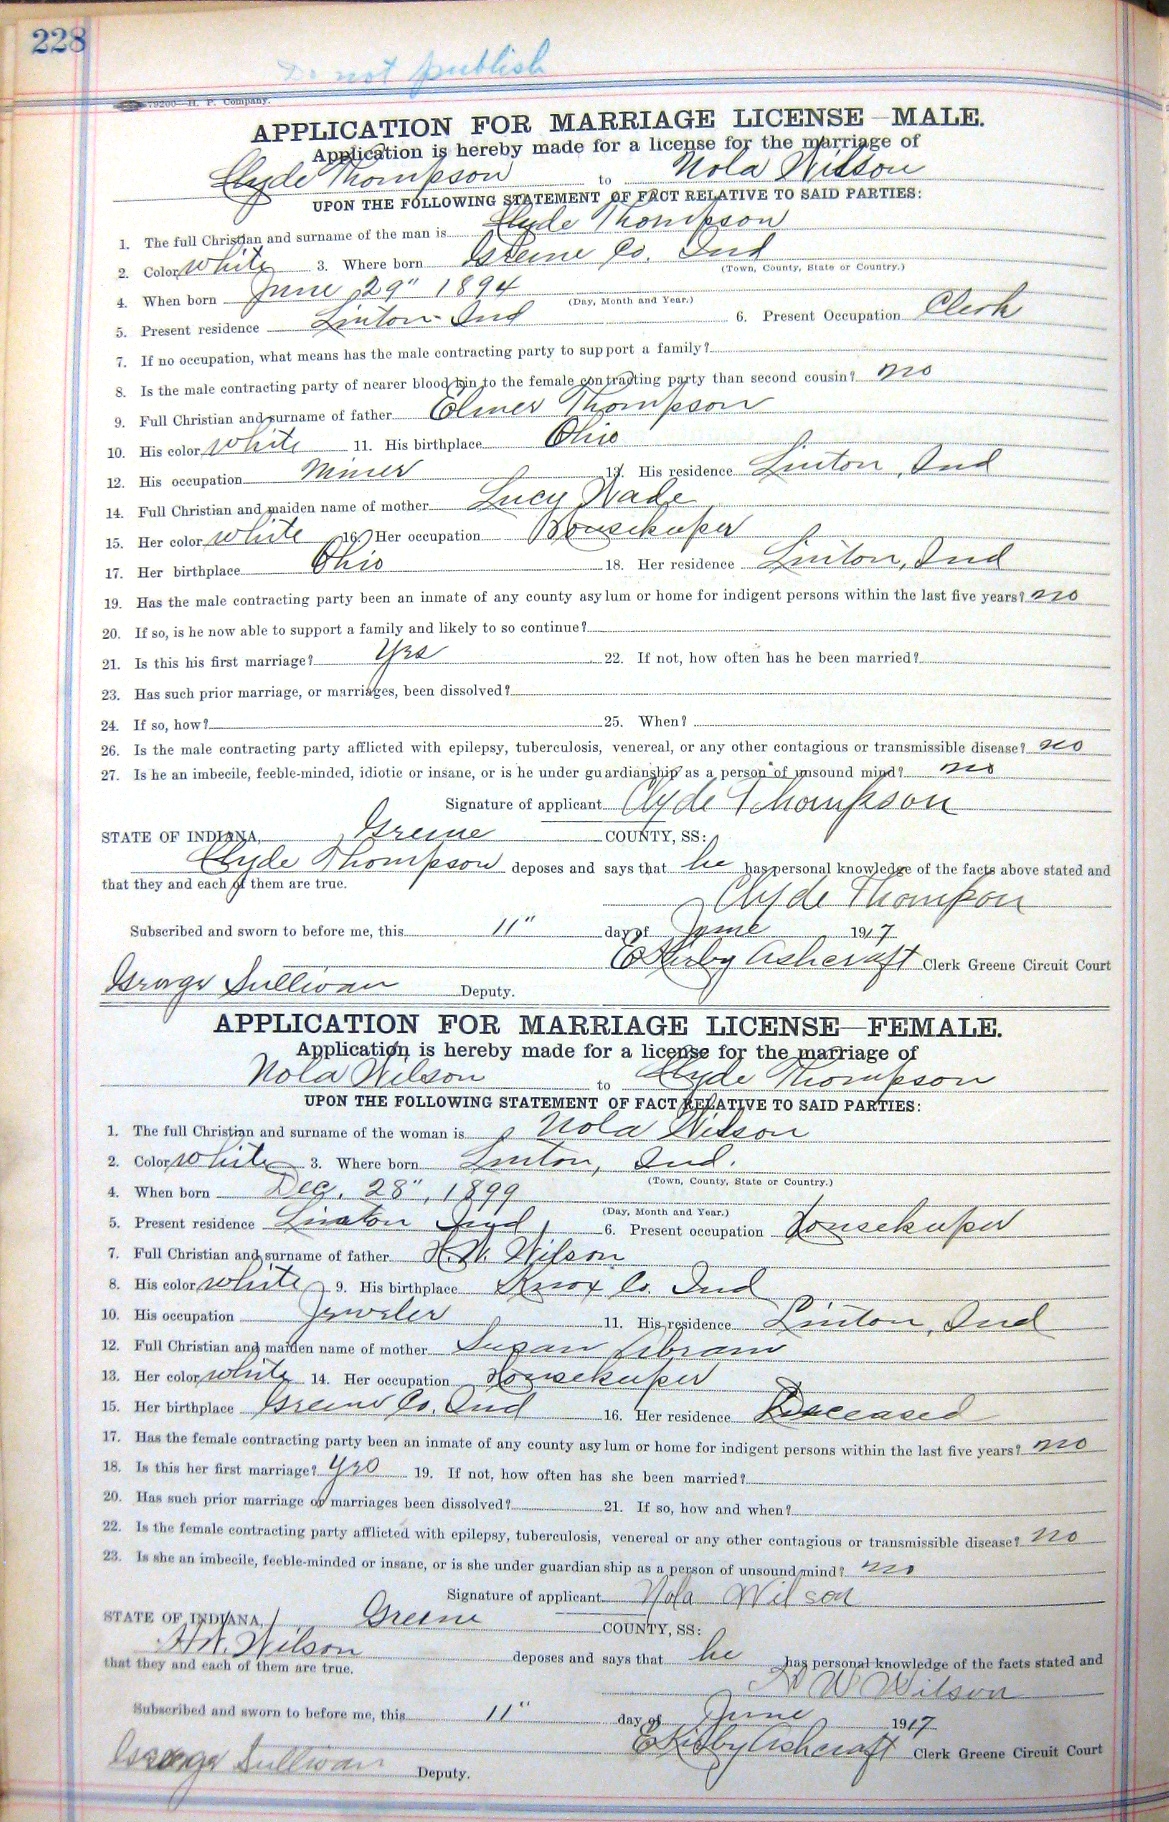 228
Do not publish
79200—H. P. Company.
APPLICATION FOR MARRIAGE LICENSE—MALE.
Application is hereby made for a license for the marriage of
Clyde Thompson to Nola Wilson
UPON THE FOLLOWING STATEMENT OF FACT RELATIVE TO SAID PARTIES:
1. The full Christian and surname of the man is Clyde Thompson
2. Color white 3. Where born Greene Co. Ind
(Town, County, State or Country.)
4. When born June 29" 1894
(Day, Month and Year.)
5. Present residence Linton Ind 6. Present Occupation Clerk
7. If no occupation, what means has the male contracting party to support a family?
8. Is the male contracting party of nearer blood kin to the female contracting party than second cousin? no
9. Full Christian and surname of father Elmer Thompson
10. His color white 11. His birthplace Ohio
12. His occupation Miner 13. His residence Linton, Ind
14. Full Christian and maiden name of mother Lucy Wade
15. Her color white 16. Her occupation Housekeeper
17. Her birthplace Ohio 18. Her residence Linton, Ind
19. Has the male contracting party been an inmate of any county asylum or home for indigent persons within the last five years? no
20. If so, is he now able to support a family and likely to so continue?
21. Is this his first marriage? Yes 22. If not, how often has he been married?
23. Has such prior marriage, or marriages, been dissolved?
24. If so, how? 25. When?
26. Is the male contracting party afflicted with epilepsy, tuberculosis, venereal, or any other contagious or transmissible disease? no
27. Is he an imbecile, feeble-minded, idiotic or insane, or is he under guardianship as a person of unsound mind? no
Signature of applicant Clyde Thompson
STATE OF INDIANA, Greene COUNTY, SS:
Clyde Thompson deposes and says that he has personal knowledge of the facts above stated and
that they and each of them are true.
Clyde Thompson
Subscribed and sworn to before me, this 11" day of June 1917
E Kirby Ashcraft Clerk Greene Circuit Court
George Sullivan Deputy.
APPLICATION FOR MARRIAGE LICENSE—FEMALE.
Application is hereby made for a license for the marriage of
Nola Wilson to Clyde Thompson
UPON THE FOLLOWING STATEMENT OF FACT RELATIVE TO SAID PARTIES:
1. The full Christian and surname of the woman is Nola Wilson
2. Color white 3. Where born Linton, Ind.
(Town, County, State or Country.)
4. When born Dec. 28", 1899
(Day, Month and Year.)
5. Present residence Linton Ind 6. Present occupation Housekeeper
7. Full Christian and surname of father H. W. Wilson
8. His color white 9. His birthplace Knox Co. Ind
10. His occupation Jeweler 11. His residence Linton, Ind
12. Full Christian and maiden name of mother Susan Abram
13. Her color white 14. Her occupation Housekeeper
15. Her birthplace Greene Co. Ind 16. Her residence Deceased
17. Has the female contracting party been an inmate of any county asylum or home for indigent persons within the last five years? no
18. Is this her first marriage? Yes 19. If not, how often has she been married?
20. Has such prior marriage or marriages been dissolved? 21. If so, how and when?
22. Is the female contracting party afflicted with epilepsy, tuberculosis, venereal or any other contagious or transmissible disease? no
23. Is she an imbecile, feeble-minded or insane, or is she under guardian ship as a person of unsound mind? no
Signature of applicant Nola Wilson
STATE OF INDIANA, Greene COUNTY, SS:
H.W. Wilson deposes and says that he has personal knowledge of the facts stated and
that they and each of them are true.
H W Wilson
Subscribed and sworn to before me, this 11" day of June 1917
E Kirby Ashcraft Clerk Greene Circuit Court
George Sullivan Deputy.